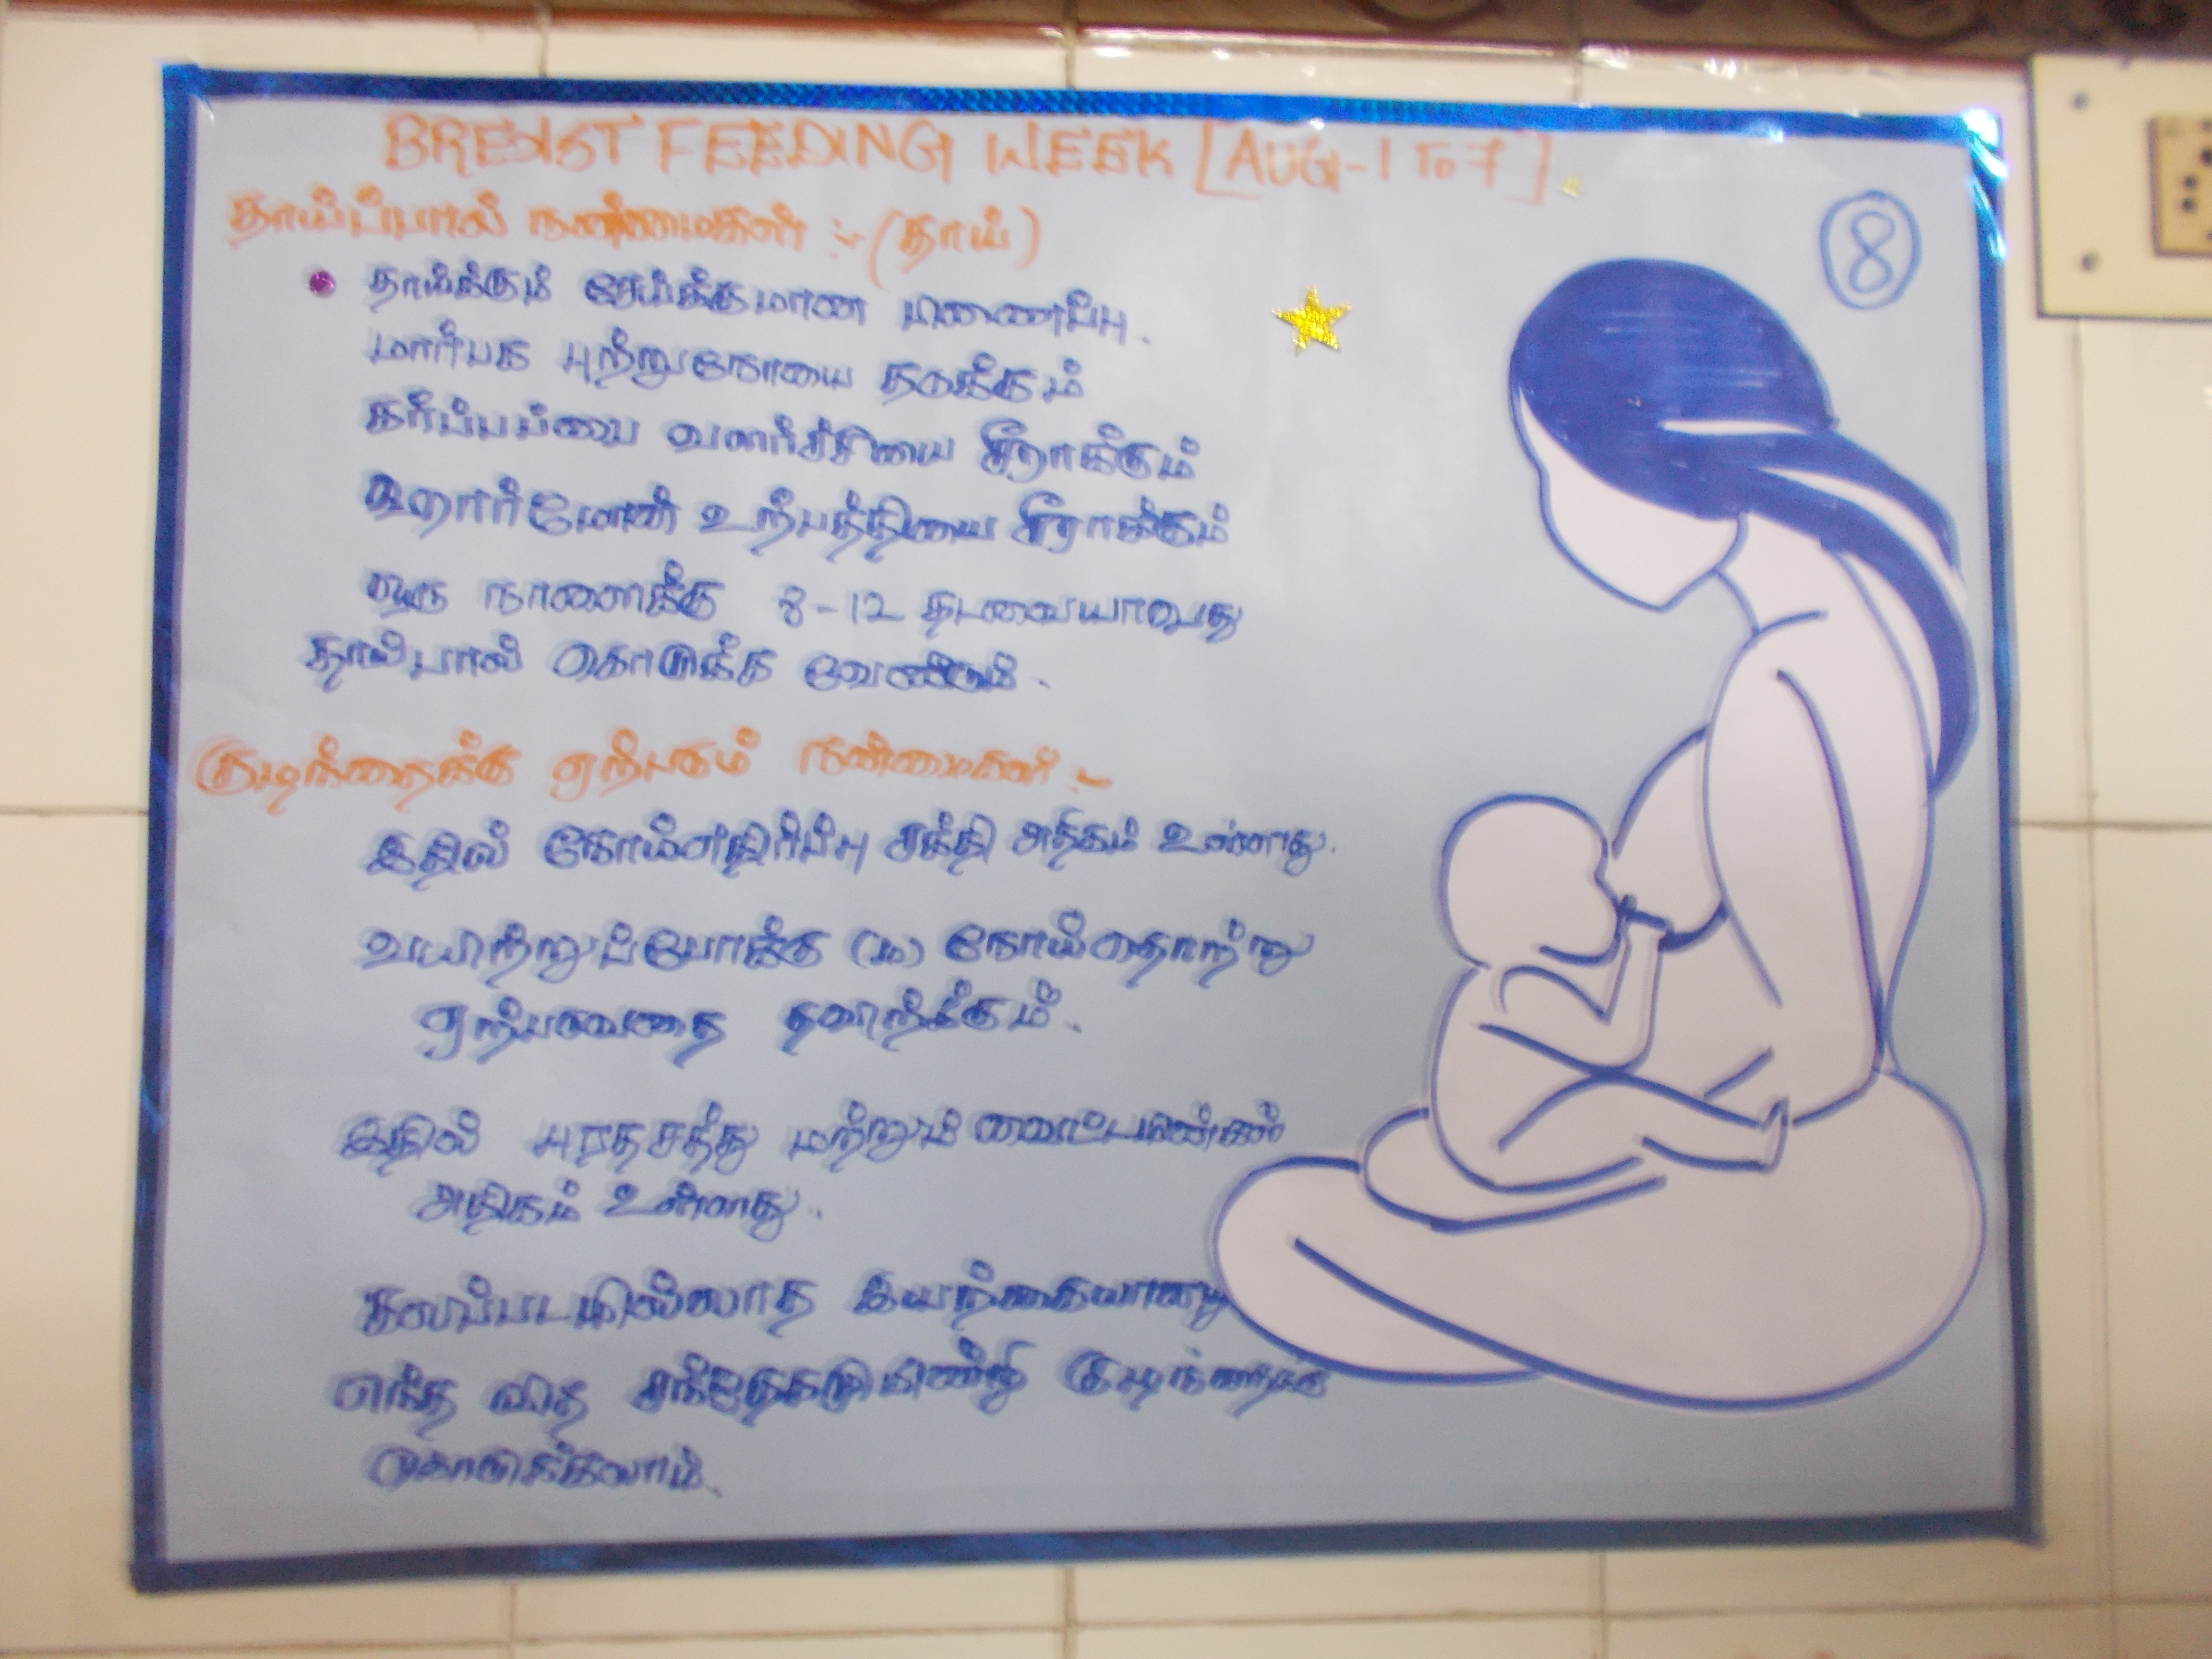 BREAST FEEDING WEEK [AUG-1 To 7].
8
தாய்ப்பால் நன்மைகள் :- (தாய்)
தாய்க்கும் சேய்க்குமான பிணைப்பு.
மார்பக புற்றுநோயை தடுக்கும்
கர்ப்பப்பை வளர்ச்சியை சீராக்கும்
ஹார்மோன் உற்பத்தியை சீராக்கும்
ஒரு நாளைக்கு 8-12 தடவையாவது
தாய்பால் கொடுக்க வேண்டும்.
குழந்தைக்கு ஏற்படும் நன்மைகள் :-
இதில் நோய்எதிர்ப்பு சக்தி அதிகம் உள்ளது.
வயிற்றுப்போக்கு (ம) நோய்தொற்று
ஏற்படுவதை தவிர்க்கும்.
இதில் புரதசத்து மற்றும் வைட்டமின்கள்
அதிகம் உள்ளது.
கலப்படமில்லாத இயற்கையானது
எந்த வித சந்தேகமுமின்றி குழந்தைக்கு
கொடுக்கலாம்.